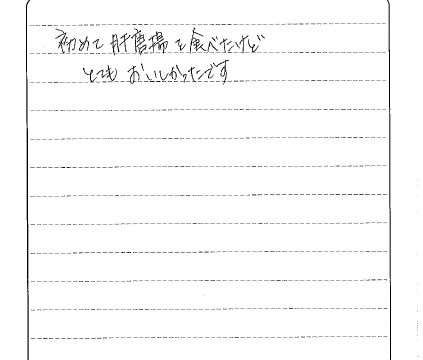 初めて肝唐揚を食べたけど
とてもおいしかったです